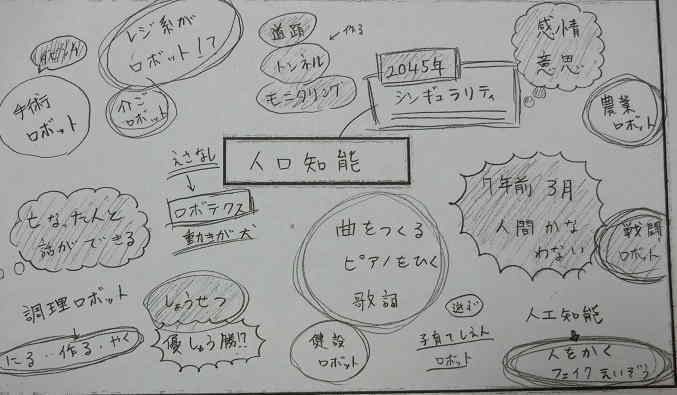 レジ系が
ロボット!?
手術
ロボット
介ご
ロボット
道路
トンネル
モニタリング
作る
2045年
シンギュラリティ
感情
意思
農業
ロボット
人口知能
えさなし
ロボテクス
動きが犬
亡なった人と
話ができる
曲をつくる
ピアノをひく
歌詞
7年前 3月
人間かな
わない
戦闘
ロボット
調理ロボット
にる・・作る・やく
しょうせつ
優しょう勝!?
健設
ロボット
遊ぶ
子育てしえん
ロボット
人工知能
人をかく
フェイクえいぞう